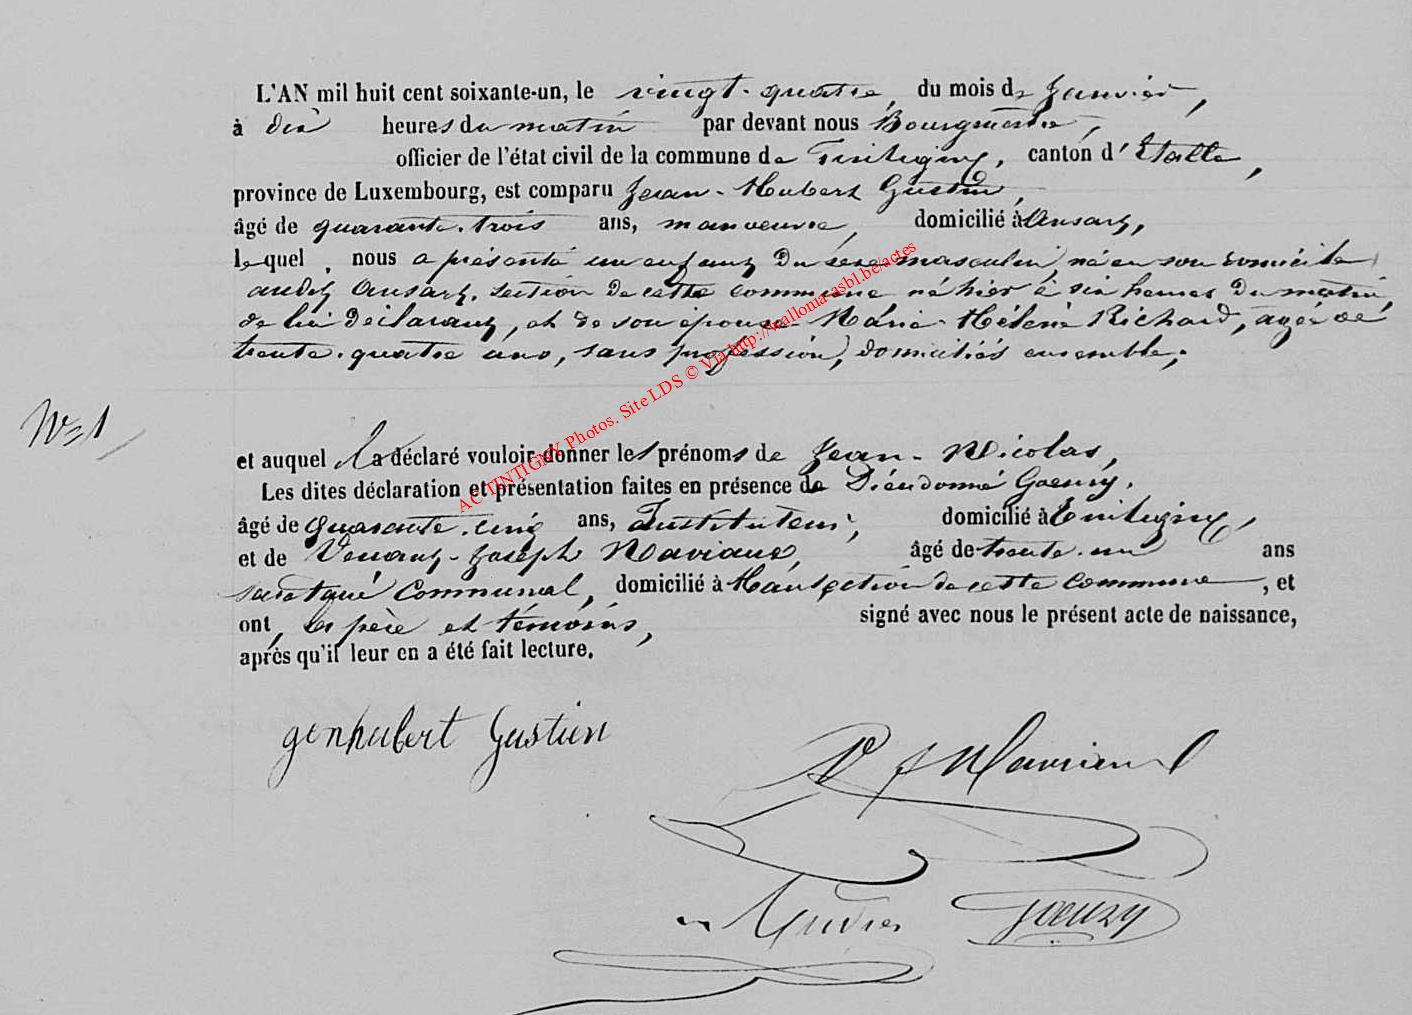 L'AN mil huit cent soixante-un, le vingt-quatre, du mois de Janvier,
à dix heures du matin par devant nous Bourgmestre,
officier de l'état civil de la commune de Tintigny, canton d'Etalle,
province de Luxembourg, est comparu Jean-Hubert Gustin,
âgé de quarante-trois ans, manœuvre, domicilié à Ansart,
lequel, nous a présenté un enfant du sexe masculin, né en son domicile
audit Ansart, section de cette commune, né hier à six heures du matin,
de lui déclarant, et de son épouse Marie-Hélène Richard, agée de
trente-quatre ans, sans profession, domiciliés ensemble;
N=1
et auquel il a déclaré vouloir donner les prénoms de Jean-Nicolas,
Les dites déclaration et présentation faites en présence de Dieudonné Goeury,
âgé de quarante-cinq ans, Instituteur, domicilié à Tintigny,
et de Venant-Joseph Maviaux, âgé de trente-un ans
secrétaire Communal, domicilié à Han, section de cette commune, et
ont, les père et témoins, signé avec nous le présent acte de naissance,
après qu'il leur en a été fait lecture.
genhubert Gustien
V J Maviaux
Goeury
AC TINTIGNY Photos. Site LDS © Via http://wallonia-asbl.be/actes